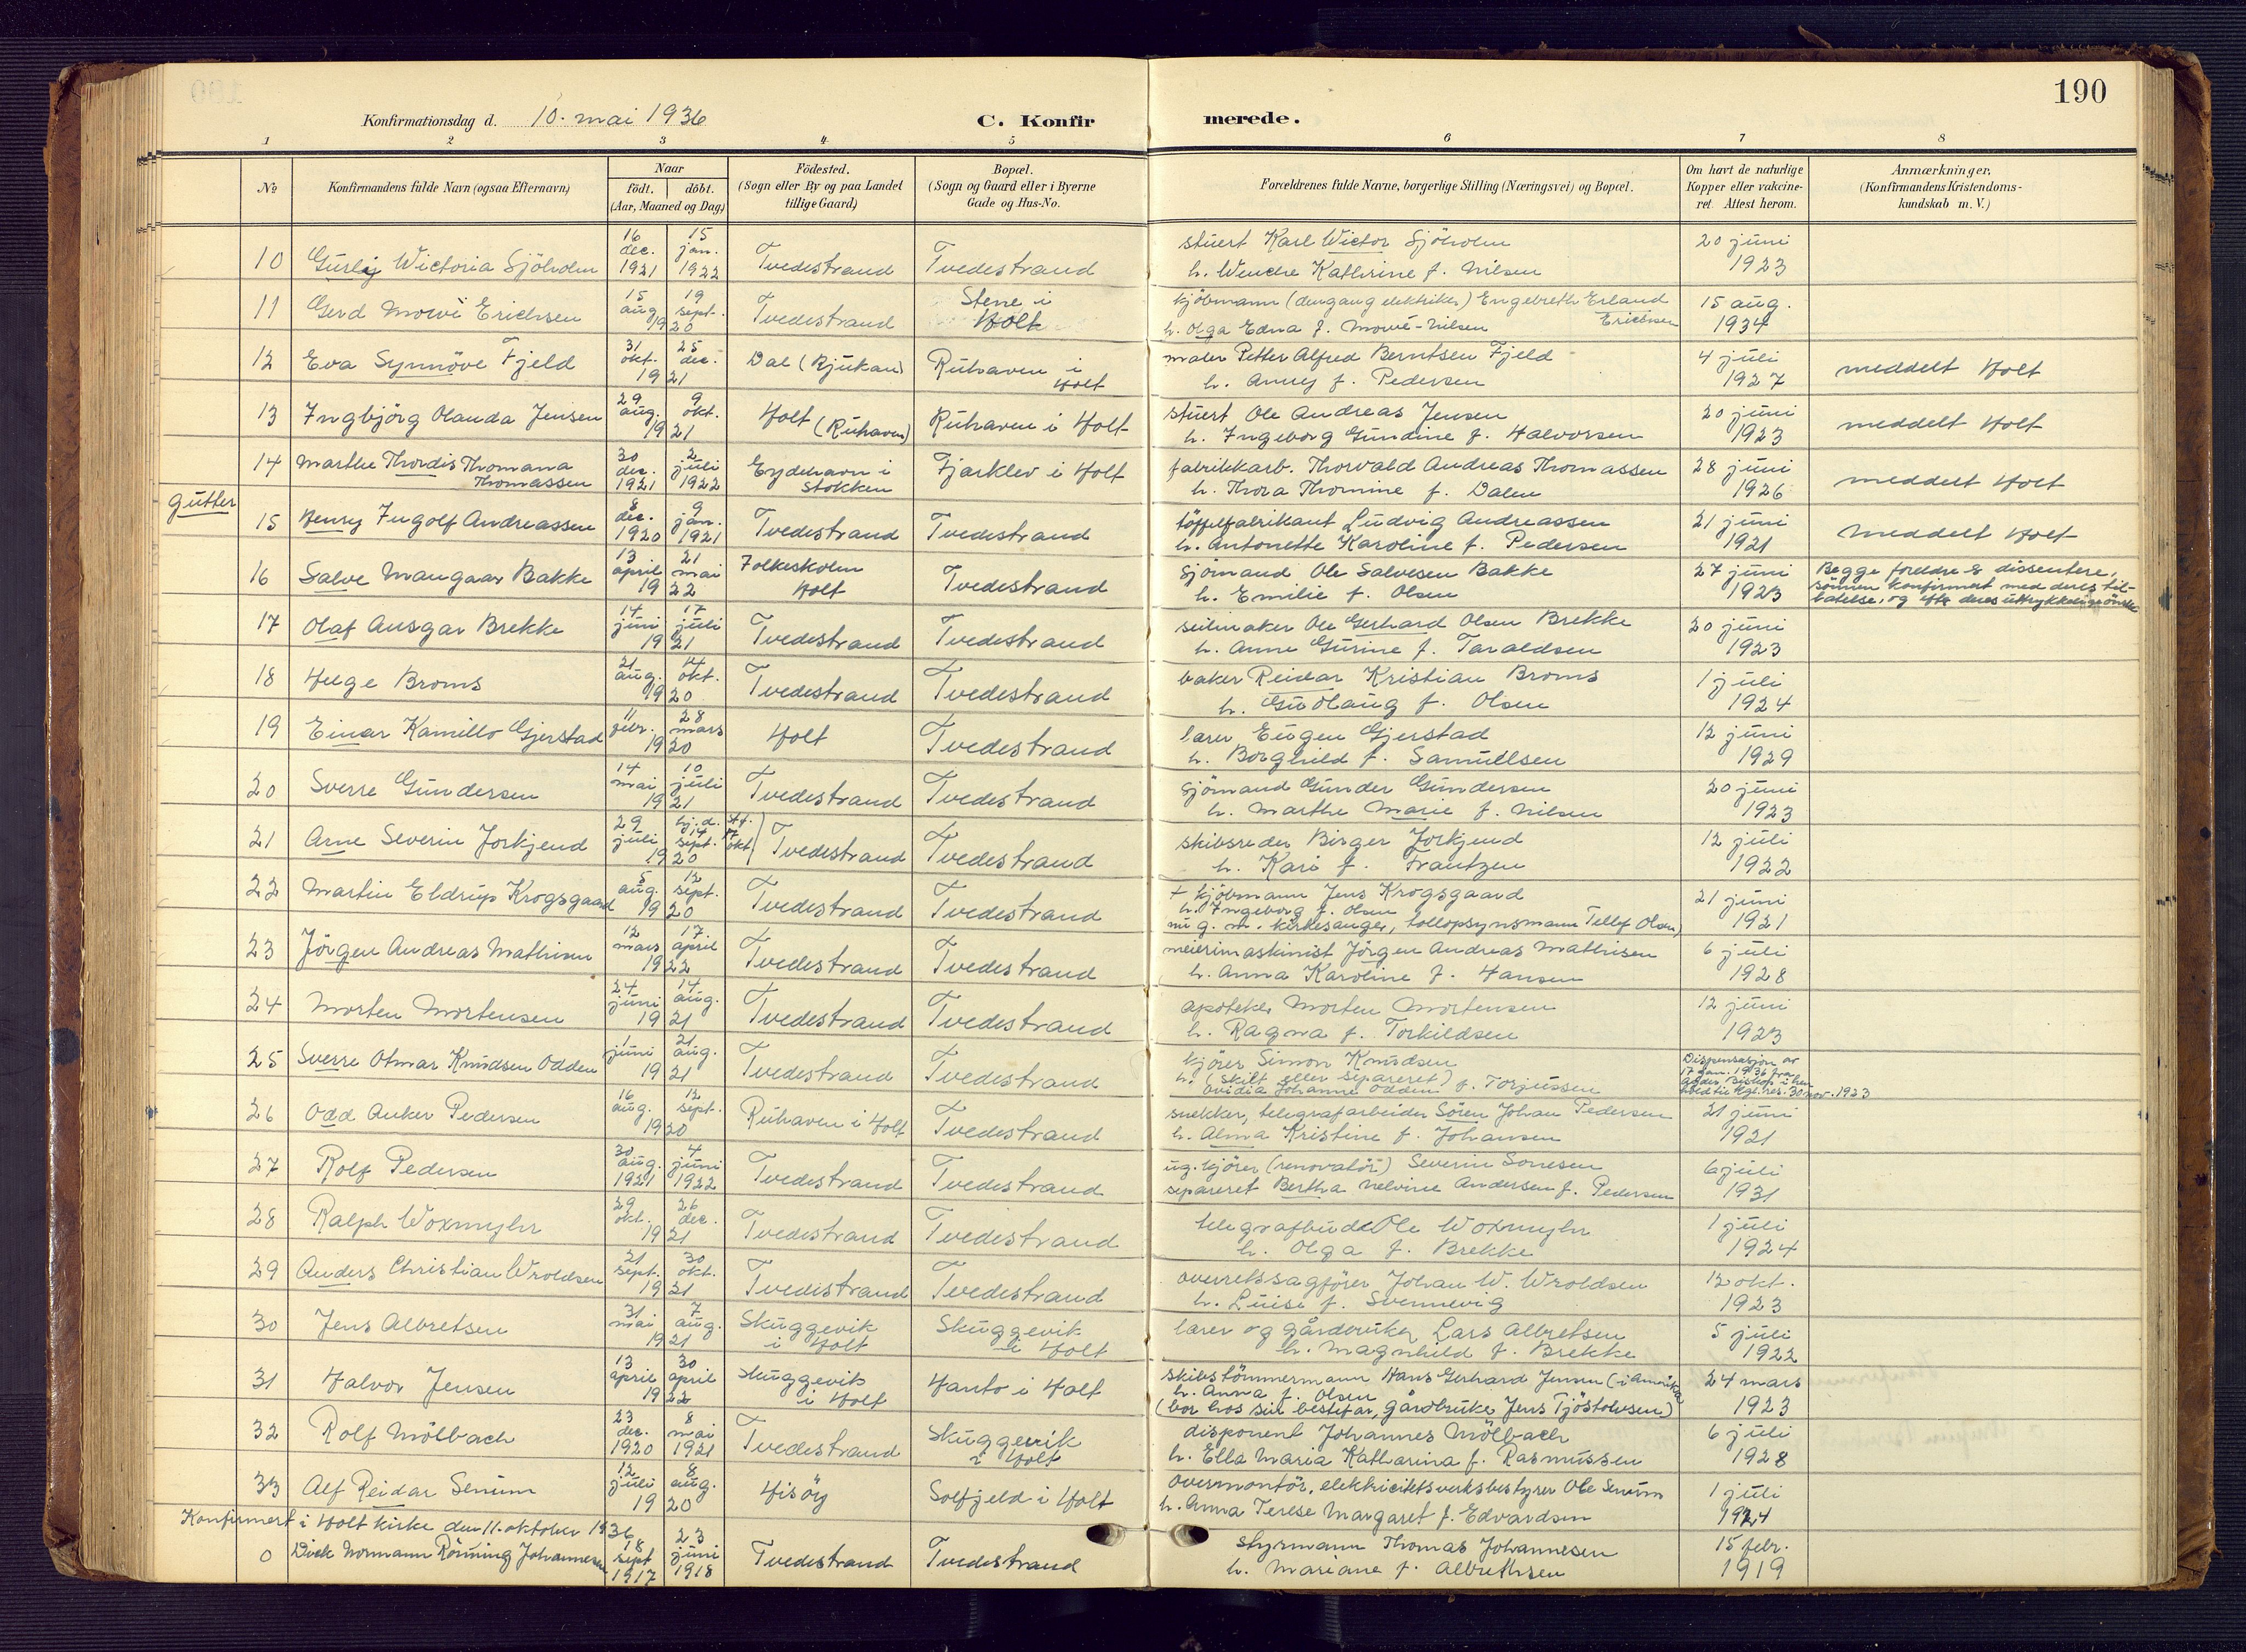 190
Konfirmationsdag d. 10. mai 1936
C. Konfirmerede.
1 2 3 4 5 6 7 8
№
Konfirmandens fulde Navn (ogsaa Efternavn)
Naar
født. døbt.
(Aar, Maaned og Dag)
Fødested.
(Sogn eller By og paa Landet
tillige Gaard)
Bopæl.
(Sogn og Gaard eller i Byerne
Gade og Hus-No.
Forældrenes fulde Navne, borgerlige Stilling (Næringsvei) og Bopæl.
Om havt de naturlige
Kopper eller vakcine-
ret. Attest herom.
Anmærkninger.
(Konfirmandens Kristendoms-
kundskab m. V.)
10 Gurly Wictoria Sjöholm 16 dec. 1921 15 jan. 1922 Tvedestrand Tvedestrand stuert Karl Wictor Sjöholm 20 juni 1923
h. Wenche Kathrine f. Nilsen
11 Gerd Mowi Erichsen 15 aug. 19 sept. 1920 Tvedestrand Stene i Holt kjöbmann (dengang elektriker) Engebreth Erland Erichsen 15 aug. 1934
h. Olga Edna f. Mowé-Nilsen
12 Eva Synnöve Fjeld 31 okt. 25 dec. 1921 Dal (Rjukan) Ruhaven i Holt maler Petter Alfred Berntsen Fjeld 4 juli 1927 meddelt Holt
h. Anny f. Pedersen
13 Ingbjörg Olanda Jensen 29 aug. 9 okt. 1921 Holt (Ruhaven) Ruhaven i Holt stuert Ole Andreas Jensen 20 juni 1923 meddelt Holt
h. Ingeborg Gundine f. Halvorsen
14 Marthe Thordis Thomana Thomassen 30 dec. 1921 2 juli 1922 Eydehavn i Stokken Fjarklev i Holt fabrikkarb. Thorvald Andreas Thomassen 28 juni 1926 meddelt Holt
h. Thora Thomine f. Dalen
gutter
15 Henry Ingolf Andreassen 8 dec. 1920 9 jan. 1921 Tvedestrand Tvedestrand töffelfabrikant Ludvig Andreassen 21 juni 1921 meddelt Holt
h. Antonette Karoline f. Pedersen
16 Salve Mangaar Bakke 13 april 21 mai 1922 Folkeskolen Holt Tvedestrand sjömand Ole Salvesen Bakke 27 juni 1923 Begge foreldre er dissentere,
sönnen konfirmert med deres til-
latelse, og efter deres uttrykkelige önske
h. Emilie f. Olsen
17 Olaf Ansgar Brekke 14 juni 17 juli 1921 Tvedestrand Tvedestrand seilmaker Ole Gerhard Olsen Brekke 20 juni 1923
h. Anne Gurine f. Taraldsen
18 Helge Broms 21 aug. 14 okt. 1920 Tvedestrand Tvedestrand baker Reidar Kristian Broms 1 juli 1924
h. Gudlaug f. Olsen
19 Einar Kamillo Gjerstad 11 febr. 28 mars 1920 Holt Tvedestrand lærer Eugen Gjerstad 12 juni 1929
h. Borghild f. Samuelsen
20 Sverre Gundersen 14 mai 10 juli 1921 Tvedestrand Tvedestrand sjömand Gunder Gundersen 20 juni 1923
h. Marthe Marie f. Nilsen
21 Arne Severin Jorkjend 29 juli hj.d. 14 sept. 1920 st.f. 17 okt. Tvedestrand Tvedestrand skibsreder Birger Jorkjend 12 juli 1922
h. Kari f. Frantzen
22 Martin Eldrup Krogsgaard 5 aug. 12 sept. 1920 Tvedestrand Tvedestrand + kjöbmann Jens Krogsgaard 21 juni 1921
h. Ingeborg f. Olsen
nu g. m. kirkesanger, tollopsynsmann Tellef Olsen)
23 Jörgen Andreas Mathisen 12 mars 17 april 1922 Tvedestrand Tvedestrand meierimaskinist Jörgen Andreas Mathisen 6 juli 1928
h. Anna Karoline f. Hansen
24 Morten Mortensen 24 juni 14 aug. 1921 Tvedestrand Tvedestrand apoteker Morten Mortensen 12 juni 1923
h. Ragna f. Torkildsen
25 Sverre Otmar Knudsen Odden 1 juni 21 aug. 1921 Tvedestrand Tvedestrand kjörer Simon Knudsen Dispensasjon av
17 jan. 1936 fra
Agder Bishop i hen
hold til kgl. res. 30 nov. 1923
h. (skilt eller separeret)
Ovidia Johanne Odden f. Torjussen
26 Odd Anker Pedersen 16 aug. 12 sept. 1920 Ruhaven i Holt Tvedestrand snekker, telegrafarbeider Sören Johan Pedersen 21 juni 1921
h. Alma Kristine f. Johansen
27 Rolf Pedersen 30 aug. 1921 4 juni 1922 Tvedestrand Tvedestrand ug. kjörer (renovatör) Severin Sörresen 6 juli 1931
separeret Bertha Nelvine Andersen f. Pedersen
28 Ralph Woxmyhr 29 okt. 26 dec. 1921 Tvedestrand Tvedestrand telegrafbud Ole Woxmyhr 1 juli 1924
h. Olga f. Brekke
29 Anders Christian Wroldsen 21 sept. 30 okt. 1921 Tvedestrand Tvedestrand overretssagförer Johan W. Wroldsen 12 okt. 1923
h. Luise f. Svennevig
30 Jens Albretsen 31 mai 7 aug. 1921 Skuggevik i Holt Skuggevik i Holt lærer og gårdbruker Lars Albretsen 5 juli 1922
h. Magnhild f. Brekke
31 Halvor Jensen 13 april 30 april 1922 Skuggevik i Holt Hanto i Holt skibstömmermann Hans Gerhard Jensen (i Amerika 24 mars 1923
h. Anna f. Olsen
(bor hos sin bestefar, gårdbruker Jens Tjöstolvsen)
32 Rolf Mölbach 23 dec. 1920 8 mai 1921 Tvedestrand Skuggevik i Holt disponent Johannes Mölbach 6 juli 1928
h. Ella Maria Katharina f. Rasmussen
33 Alf Reidar Senum 12 juli 8 aug. 1920 Hisöy Solfjeld i Holt overmontör, elektricitetsverksbestyrer Ole Senum 1 juli 1924
h. Anna Terese Margaret f. Edvardsen
Konfirmert i Holt kirke den 11. oktober 1936
0 Dick Normann Rönning Johannesen 18 sept 1917 23 juni 1918 Tvedestrand Tvedestrand styrmann Thomas Johannesen 15 febr. 1919
h. Mariane f. Albrethsen